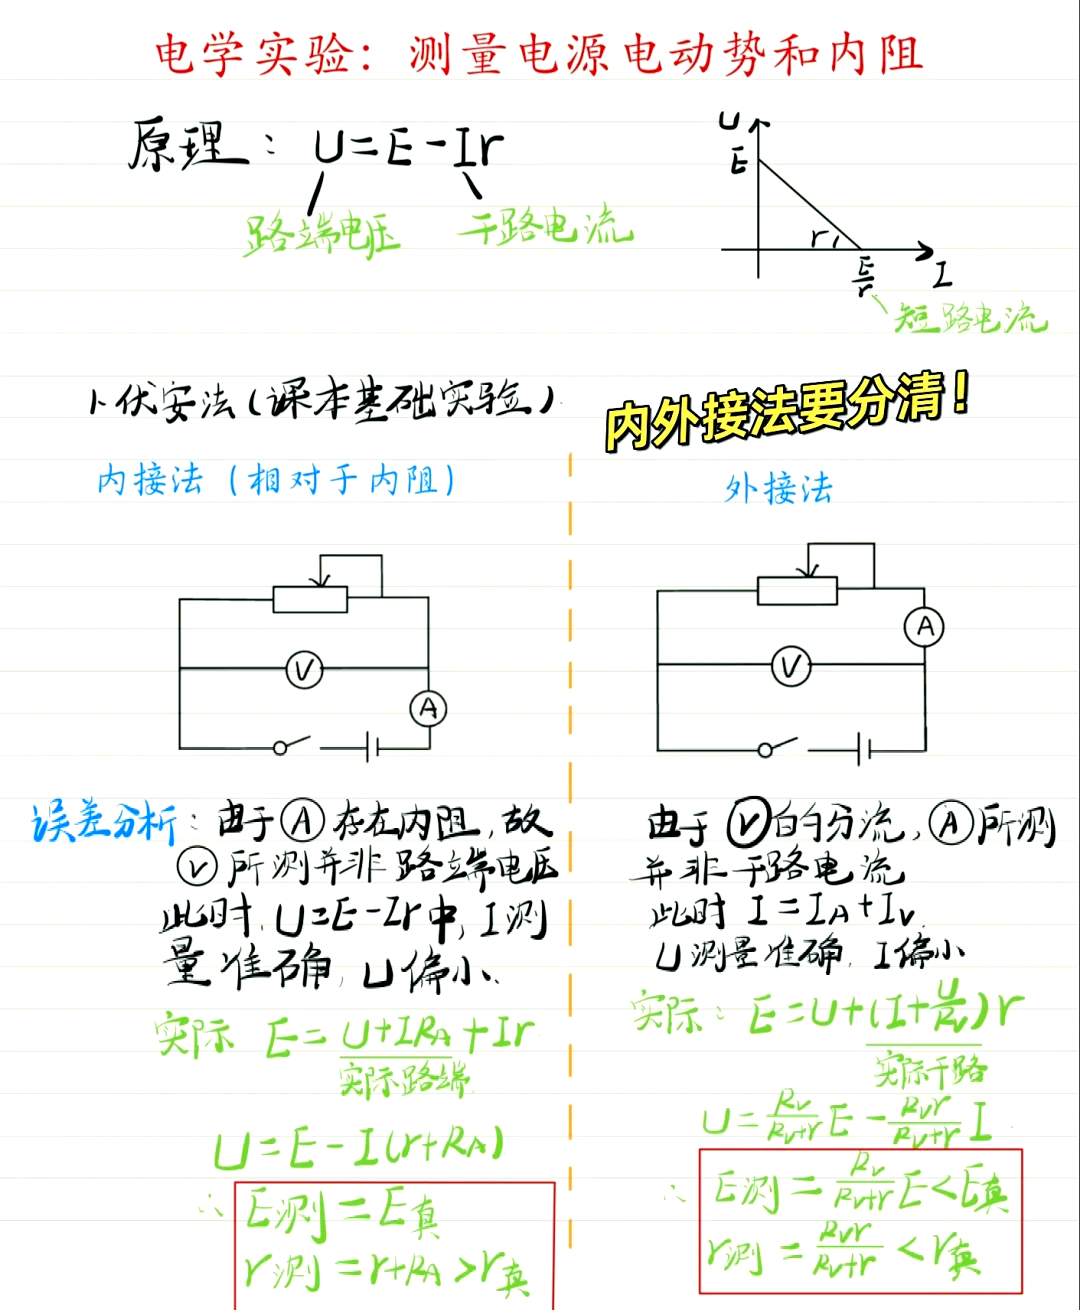 电学实验：测量电源电动势和内阻
原理：U=E-Ir
路端电压 干路电流
U
E
r
E/r
I
短路电流
1、伏安法(课本基础实验)
内外接法要分清！
内接法（相对于内阻）
外接法
V
A
A
V
误差分析：由于Ⓐ存在内阻，故
Ⓥ所测并非路端电压
此时，U=E-Ir中，I测
量准确，U偏小、
实际 E=U+IR_A+Ir
实际路端
U=E-I(r+R_A)
∴ E测=E真
r测=r+R_A>r真
由于Ⓥ的分流，Ⓐ所测
并非干路电流
此时 I=I_A+I_V
U测量准确，I偏小
实际：E=U+(I+U/R_V)r
实际干路
U=R_V/(R_V+r) E-R_V r/(R_V+r) I
∴ E测=R_V/(R_V+r) E<E真
r测=R_V r/(R_V+r)<r真